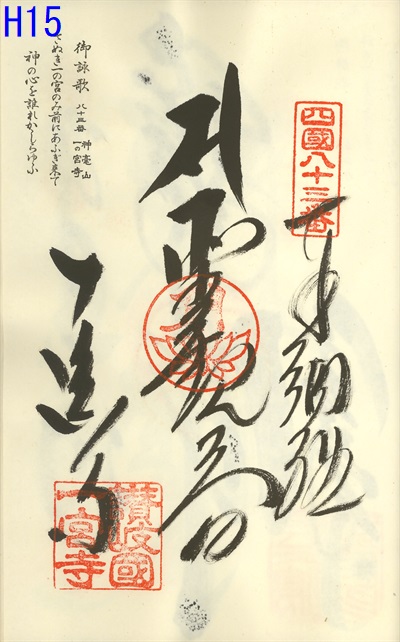 H15
四國八十三番
奉納経
聖観音
一宮寺
讃岐國
一宮寺
御詠歌 八十三番 神毫山 一の宮寺
さぬき一の宮のみ前にあふぎ来て
神の心を誰れかしらゆふ